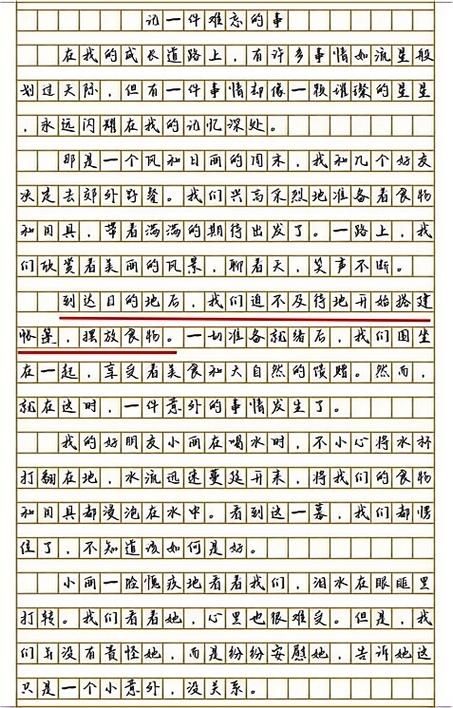 记一件难忘的事
在我的成长道路上，有许多事情如流星般
划过天际，但有一件事情却像一颗璀璨的星星
，永远闪耀在我的记忆深处。
那是一个风和日丽的周末，我和几个好友
决定去郊外野餐。我们兴高采烈地准备着食物
和用具，带着满满的期待出发了。一路上，我
们欣赏着美丽的风景，聊着天，笑声不断。
到达目的地后，我们迫不及待地开始搭建
帐篷，摆放食物。一切准备就绪后，我们围坐
在一起，享受着美食和大自然的馈赠。然而，
就在这时，一件意外的事情发生了。
我的好朋友小丽在喝水时，不小心将水杯
打翻在地，水流迅速蔓延开来，将我们的食物
和用具都浸泡在水中。看到这一幕，我们都愣
住了，不知道该如何是好。
小丽一脸愧疚地看着我们，泪水在眼眶里
打转。我们看着她，心里也很难受。但是，我
们并没有责怪她，而是纷纷安慰她，告诉她这
只是一个小意外，没关系。